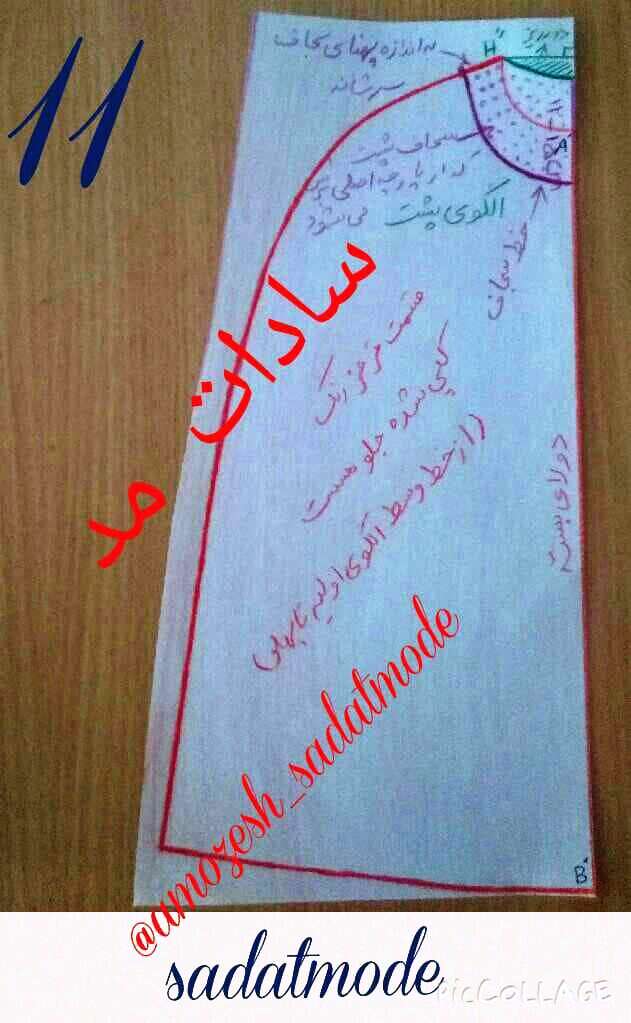 11
دور ریز
H"
به اندازه پهنای سجاف
سر شانه
سجاف پشت
که از پارچه اصلی برش
الگوی پشت می شود
A
خط سجاف
سادات مد
قسمت قرمز رنگ
کپی شده جلو هست
از خط وسط الگوی اولیه تا پهلو
دولای بسته
B"
@amozesh_sadatmode
sadatmode
PICCOLLAGE